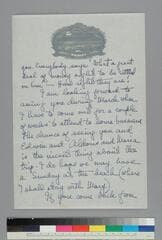 you. Everybody says "What a great
deal of money ought to be settled
on him — How right they are!
I am looking forward to
seeing you during March when
I have to come east for a couple
of weeks to attend to some business
The chance of seeing you and
Edwina and
is the nicest thing about the
trip. I do hope we may have
a Sunday at the
I shall stay with Mary.
If you come back from